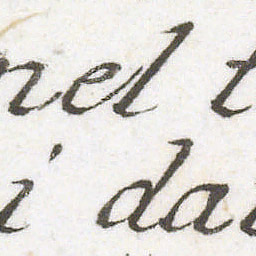 nel t
i dat